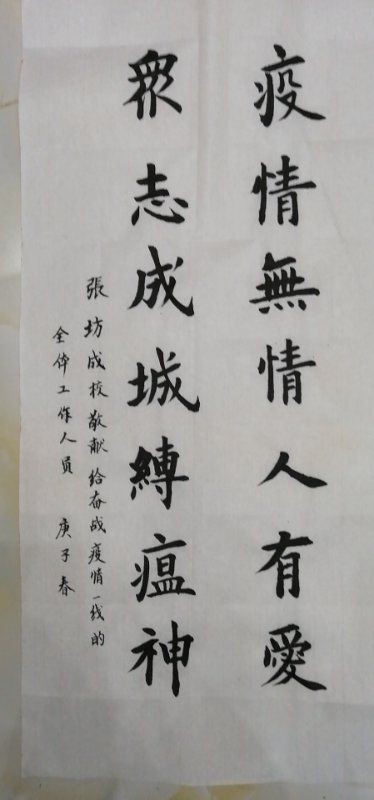 疫情無情人有愛
眾志成城縛瘟神
張坊成校敬献给奋战疫情一线的
全体工作人員 庚子春